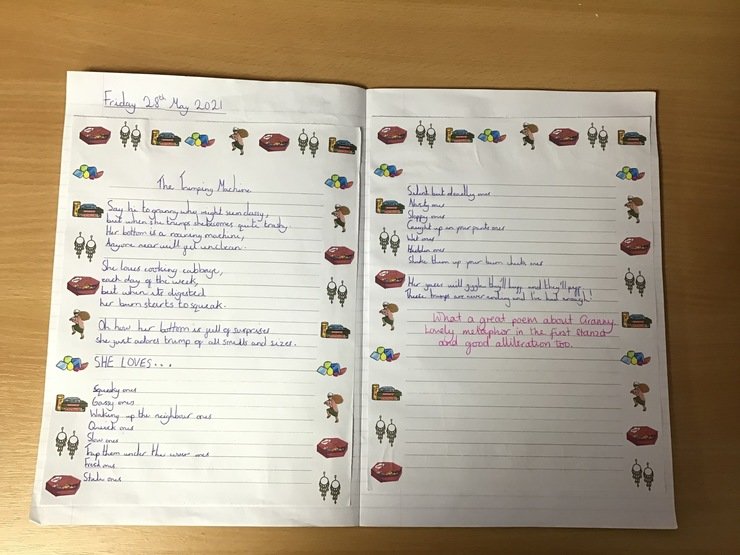 Friday 28th May 2021
The Trumping Machine
Say hi to granny who might seem classy,
but when she trumps she becomes quite trashy.
Her bottom is a roaring machine,
Anyone near will get unclean.
She loves cooking cabbage,
each day of the week,
but when its digested
her bum starts to squeak.
Oh how her bottom is full of surprises
she just adores trump of all smells and sizes.
SHE LOVES...
Squeaky ones
Gassy ones
Waking up the neighbour ones
Quick ones
Slow ones
Trap them under the cover ones
Fresh ones
Stale ones
Silent but deadly ones
Nasty ones
Sloppy ones
Caught up in your pants ones
Wet ones
Hidden ones
Shake them up your bum cheeks ones
Her gases will giggle they'll and they'll
These trumps are never ending and I've had enough!
What a great poem about Granny
Lovely metaphor in the first stanza
and good alliteration too.